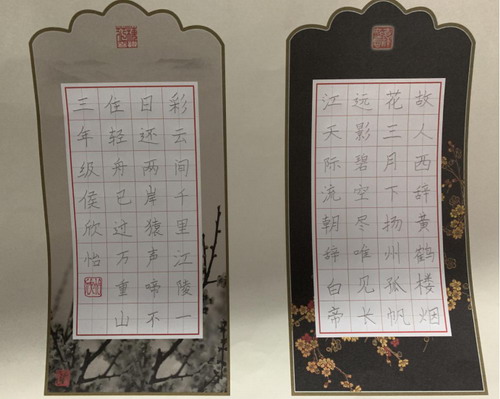 故人西辞黄鹤楼烟
花三月下扬州孤帆
远影碧空尽唯见长
江天际流朝辞白帝
彩云间千里江陵一
日还两岸猿声啼不
住轻舟已过万重山
三年级侯欣怡